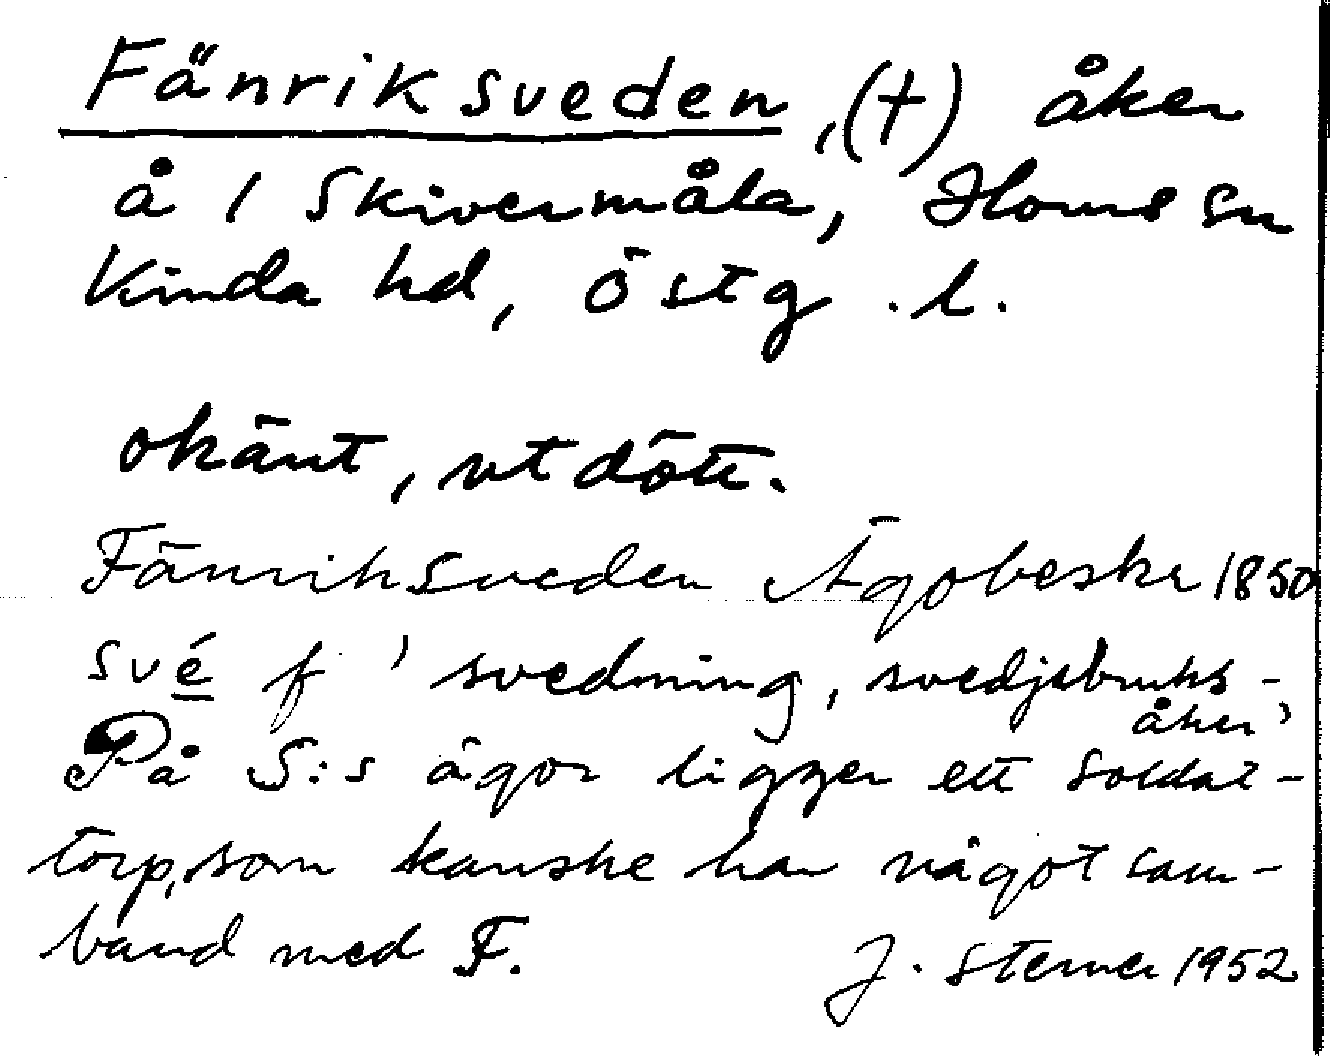 Fänriksveden, (†) åker
å 1 Skivermåla, Horns sn
Kinda hd, Östg. l.
okänt, utdött.
Fänriksveden Ägobeskr 1850
své f ' svedning, svedjebruks-
åker'
På S:s ägor ligger ett soldat-
torp, som kanske har något sam-
band med F.
J. Sterner 1952